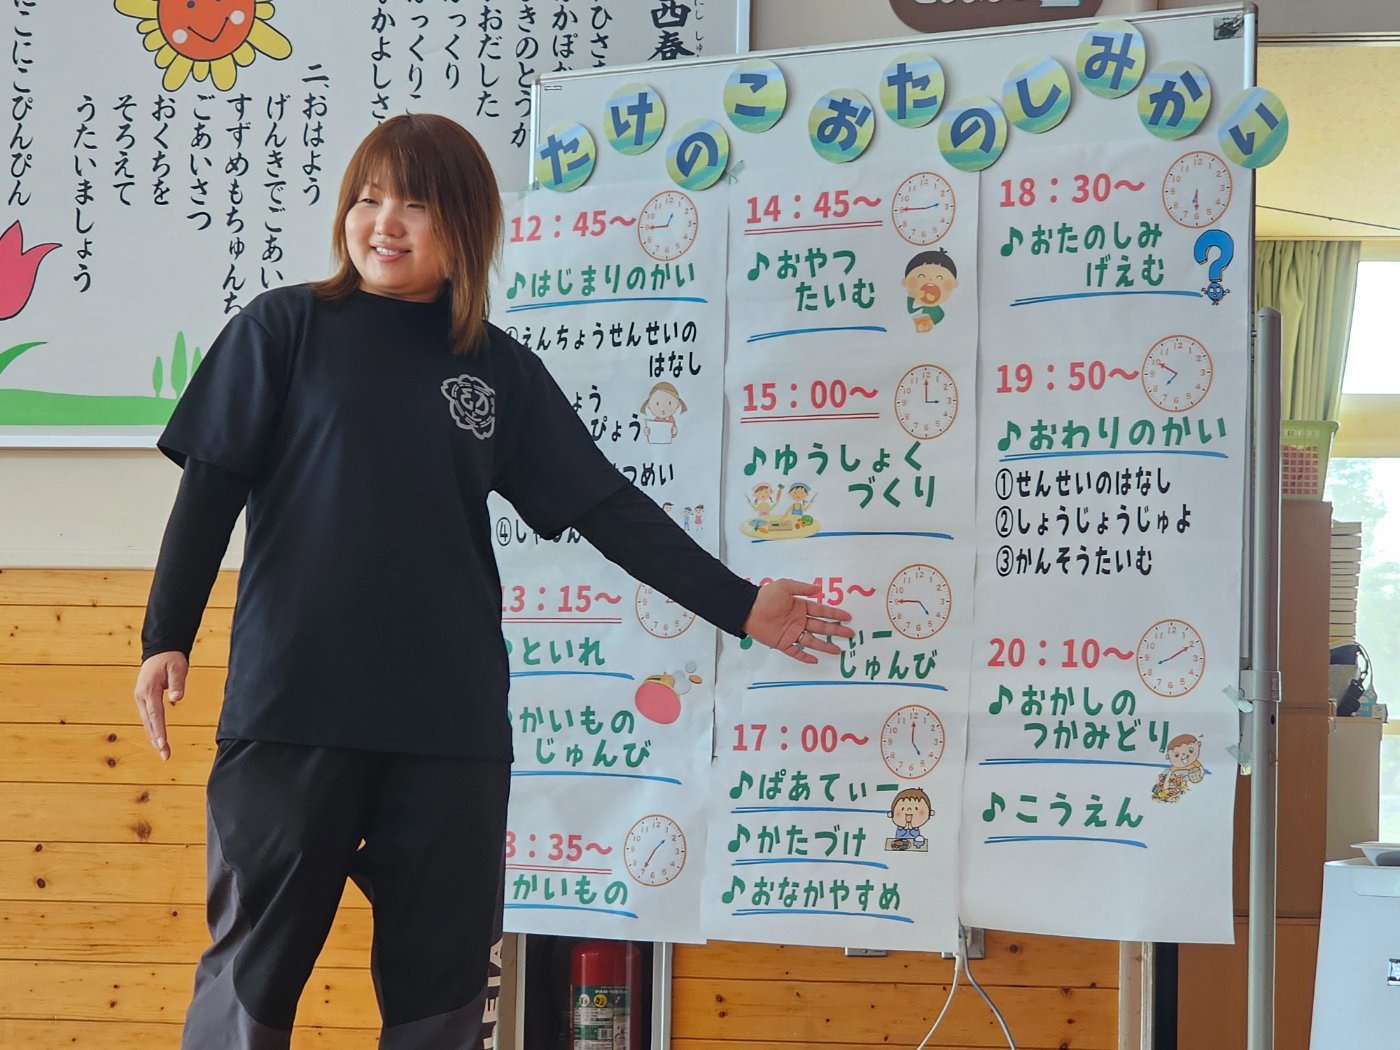 たけのこ おたのしみかい
12：45～
♪はじまりのかい
えんちょうせんせいの
はなし
④し
13：15～
といれ
かいもの
じゅんび
3：35～
かいもの
14：45～
♪おやつ
たいむ
15：00～
♪ゆうしょく
づくり
45～
じゅんび
17：00～
♪ぱあてぃー
♪かたづけ
♪おなかやすめ
18：30～
♪おたのしみ
げえむ
19：50～
♪おわりのかい
①せんせいのはなし
②しょうじょうじゅよ
③かんそうたいむ
20：10～
♪おかしの
つかみどり
♪こうえん
西春
二、おはよう
げんきでごあい
すずめもちゅんち
ごあいさつ
おくちを
そろえて
うたいましょう
にこにこぴんぴん